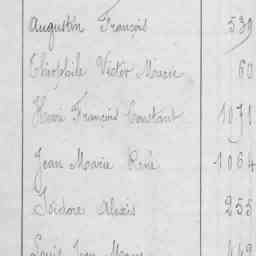 Augustin François 539
Théophile Victor Marie 60
Henri François Constant 1071
Jean Marie René 1064
Isidore Alexis 255
Louis Jean Marie 449